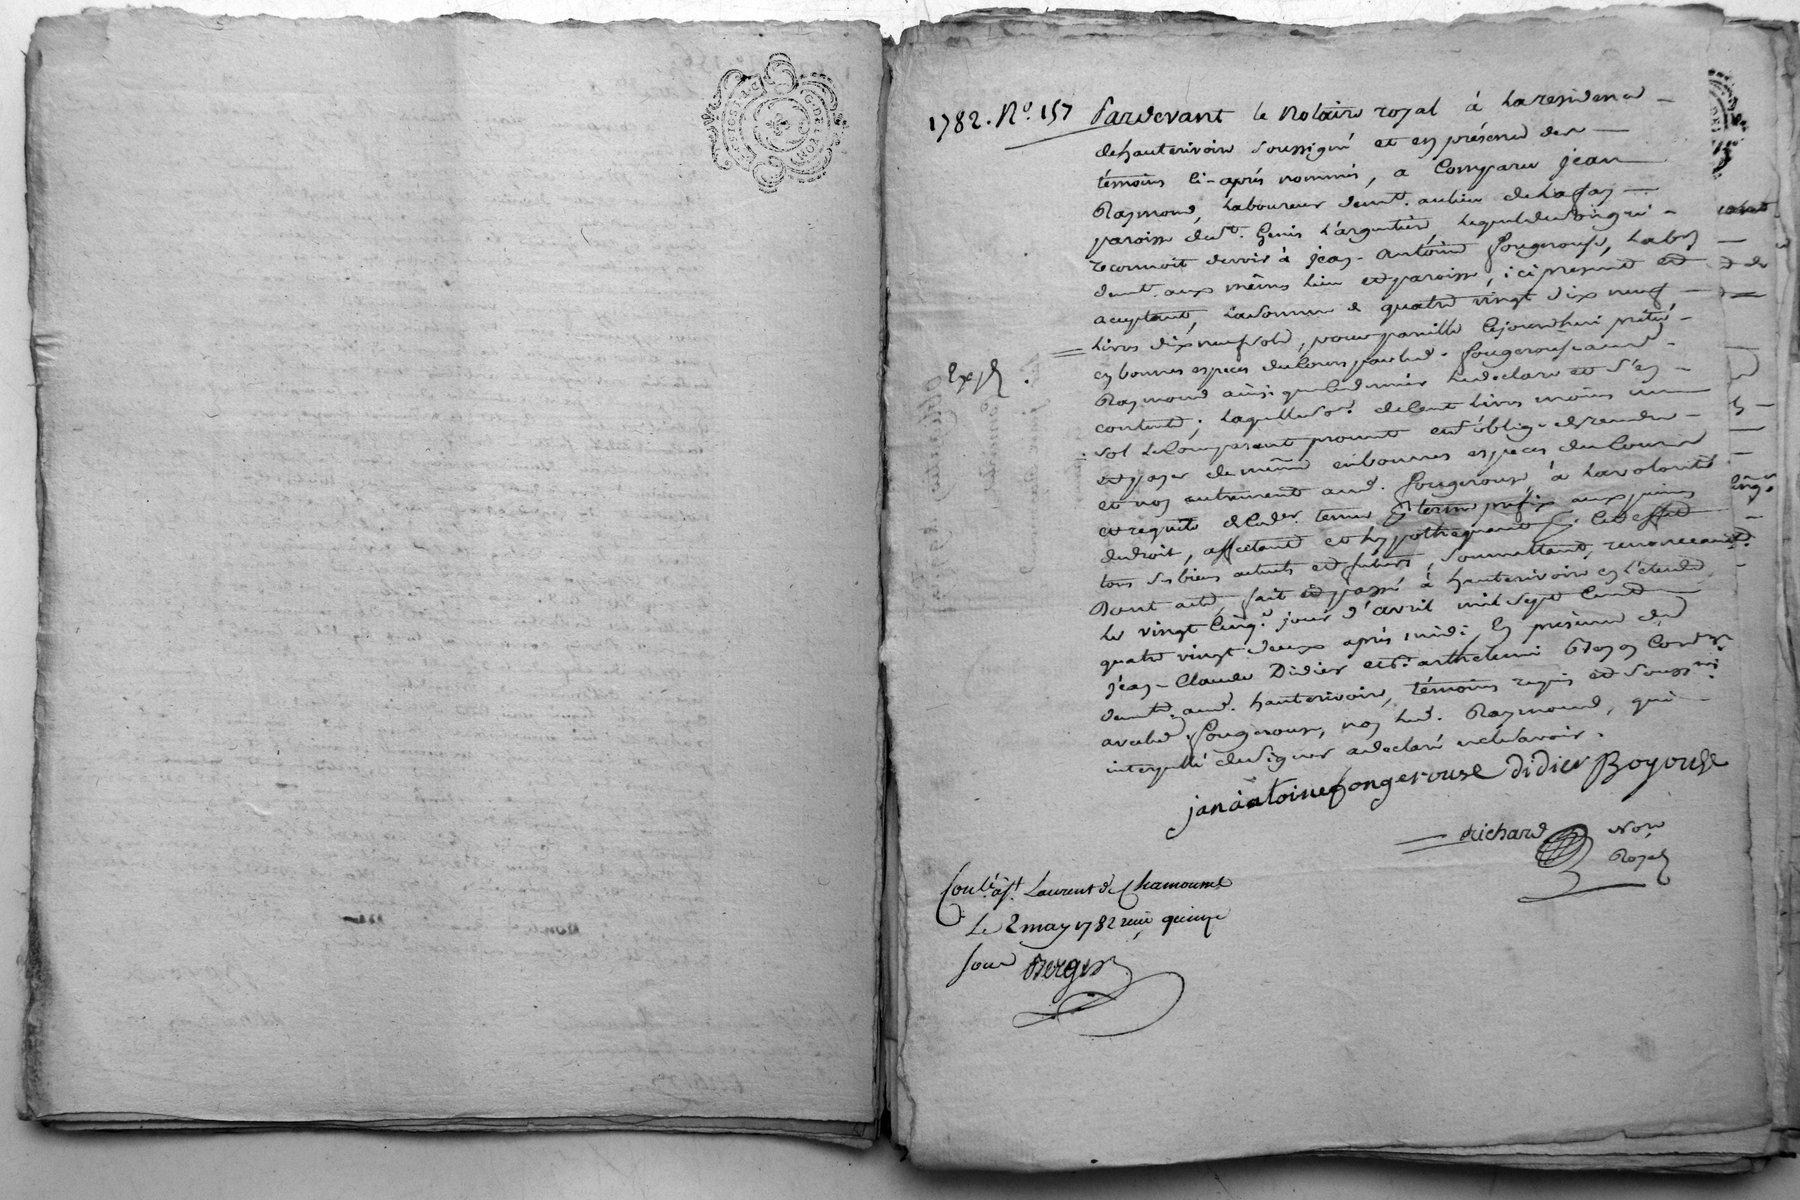 1782. N.o 157
Pardevant le Notaire royal à la residence
de hauterivoire soussigné et en présence des
témoins ci-après nommés, a comparu jean
Raymond, laboureur demt. au lieu de la fay
paroisse de st. Genis l'argentière, lequel de son gré
reconnoit devoir à jean-antoine fougerouse, labr
demt. aux mêmes lieu et paroisse, ici present et
acceptant, la somme de quatre vingt dix neuf
livres dix neuf sols, pour pareille cejourdhui prêtée
Expé.
en bonnes especes du cours par led. fougerouse aud.
Raymond ainsi que ce dernier le declare et s'en
contente; laquelle so. de cent livres moins un
sol le comparant promet et s'oblige de rendre
et payer de même en bonnes especes du cours
et non autrement aud. fougerouse, à la volonté
et requete de ce der. terme prefix aux peines
de droit, affectant et hypothequant à cet effet
tous ses biens actuels et futurs, soumettant, renonceant.
Dont acte, fait et passé à hauterivoire en l'étude
le vingt cinq. jour d'avril mil sept cent
quatre vingt deux après midi, en présence de
jean-Claude Didier et Barthelemi
demt. aud. hauterivoire, témoins requis et soussnés.
avec led. fougerouse, non led. Raymond, qui
interpellé de signer a declaré ne le savoir.
jan àntoine fongerouse didier Boyouse
Richard Nore
Royal
Conlé. à st. Laurent de Chamousset
Le 2 may 1782 reçu quinze
sous Berger